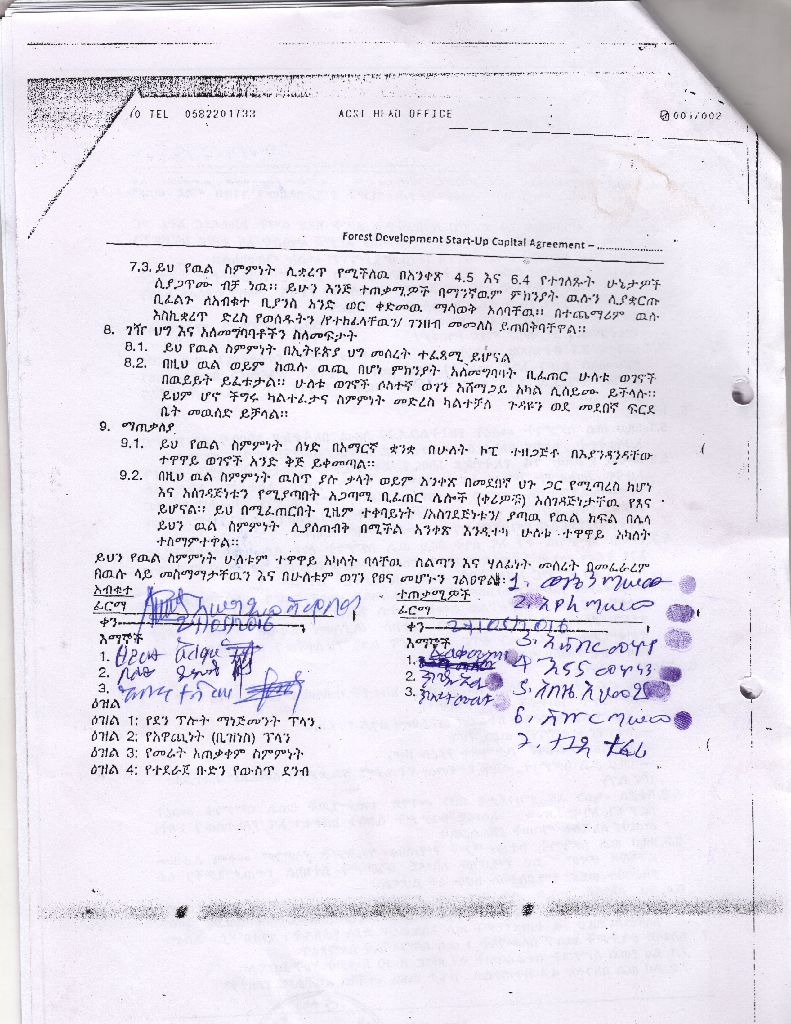 TEL 0582201733 ACSI HEAD OFFICE 001/002
Forest Development Start-Up Capital Agreement – ....................
7.3. ይህ የዉል ስምምነት ሊቋረጥ የሚችለዉ በአንቀጽ 4.5 እና 6.4 የተገለጹት ሁኔታዎች
ሲያጋጥሙ ብቻ ነዉ። ይሁን እንጅ ተጠቃሚዎች በማንኛዉም ምክንያት ዉሉን ሊያቋርጡ
ቢፈልጉ ለአብቁተ ቢያንስ አንድ ወር ቀድመዉ ማሳወቅ አለባቸዉ። በተጨማሪም ዉሉ
እስኪቋረጥ ድረስ የወሰዱትን /የተከፈላቸዉን/ ገንዘብ መመለስ ይጠበቅባቸዋል።
8. ገዥ ህግ እና አለመግባባቶችን ስለመፍታት
8.1. ይህ የዉል ስምምነት በኢትዮጵያ ህግ መሰረት ተፈጻሚ ይሆናል
8.2. በዚህ ዉል ወይም ከዉሉ ዉጪ በሆነ ምክንያት አለመግባባት ቢፈጠር ሁለቱ ወገኖች
በዉይይት ይፈቱታል። ሁለቱ ወገኖች ሶስተኛ ወገን አሸማጋይ አካል ሊሰይሙ ይችላሉ።
ይህም ሆኖ ችግሩ ካልተፈታና ስምምነት መድረስ ካልተቻለ ጉዳዩን ወደ መደበኛ ፍርድ
ቤት መዉሰድ ይቻላል።
9. ማጠቃለያ
9.1. ይህ የዉል ስምምነት ሰነድ በአማርኛ ቋንቋ በሁለት ኮፒ ተዘጋጅቶ በእያንዳንዳቸው
ተዋዋይ ወገኖች አንድ ቅጅ ይቀመጣል።
9.2. በዚህ ዉል ስምምነት ዉስጥ ያሉ ቃላት ወይም አንቀጽ በመደበኛ ህጉ ጋር የሚጣረስ ከሆነ
እና አስገዳጅነቱን የሚያጣበት አጋጣሚ ቢፈጠር ሌሎች (ቀሪዎቹ) አስገዳጅነታቸዉ የጸና
ይሆናል። ይህ በሚፈጠርበት ጊዜም ተቀባይነት /አስገደጅነቱን/ ያጣዉ የዉል ክፍል በሌላ
ይህን ዉል ስምምነት ሊያስጠብቅ በሚችል አንቀጽ እንዲተካ ሁለቱ ተዋዋይ አካላት
ተስማምተዋል።
ይህን የዉል ስምምነት ሁለቱም ተዋዋይ አካላት ባላቸዉ ስልጣን እና ሃላፊነት መሰረት በመፈራረም
በዉሉ ላይ መስማማታቸዉን እና በሁለቱም ወገን የፀና መሆኑን ገልፀዋል።
አብቁተ
ፊርማ
ቀን 27/05/2016
እማኞች
1.
2.
3.
ተጠቃሚዎች
ፊርማ
ቀን 27/05/2016
እማኞች
1.
2.
3.
1.
2.
3.
4.
5.
6.
7.
ዕዝል
ዕዝል 1: የደን ፕሎት ማነጅመንት ፕላን
ዕዝል 2: የአዋጪነት (ቢዝነስ) ፕላን
ዕዝል 3: የመሬት አጠቃቀም ስምምነት
ዕዝል 4: የተደራጀ ቡድን የውስጥ ደንብ